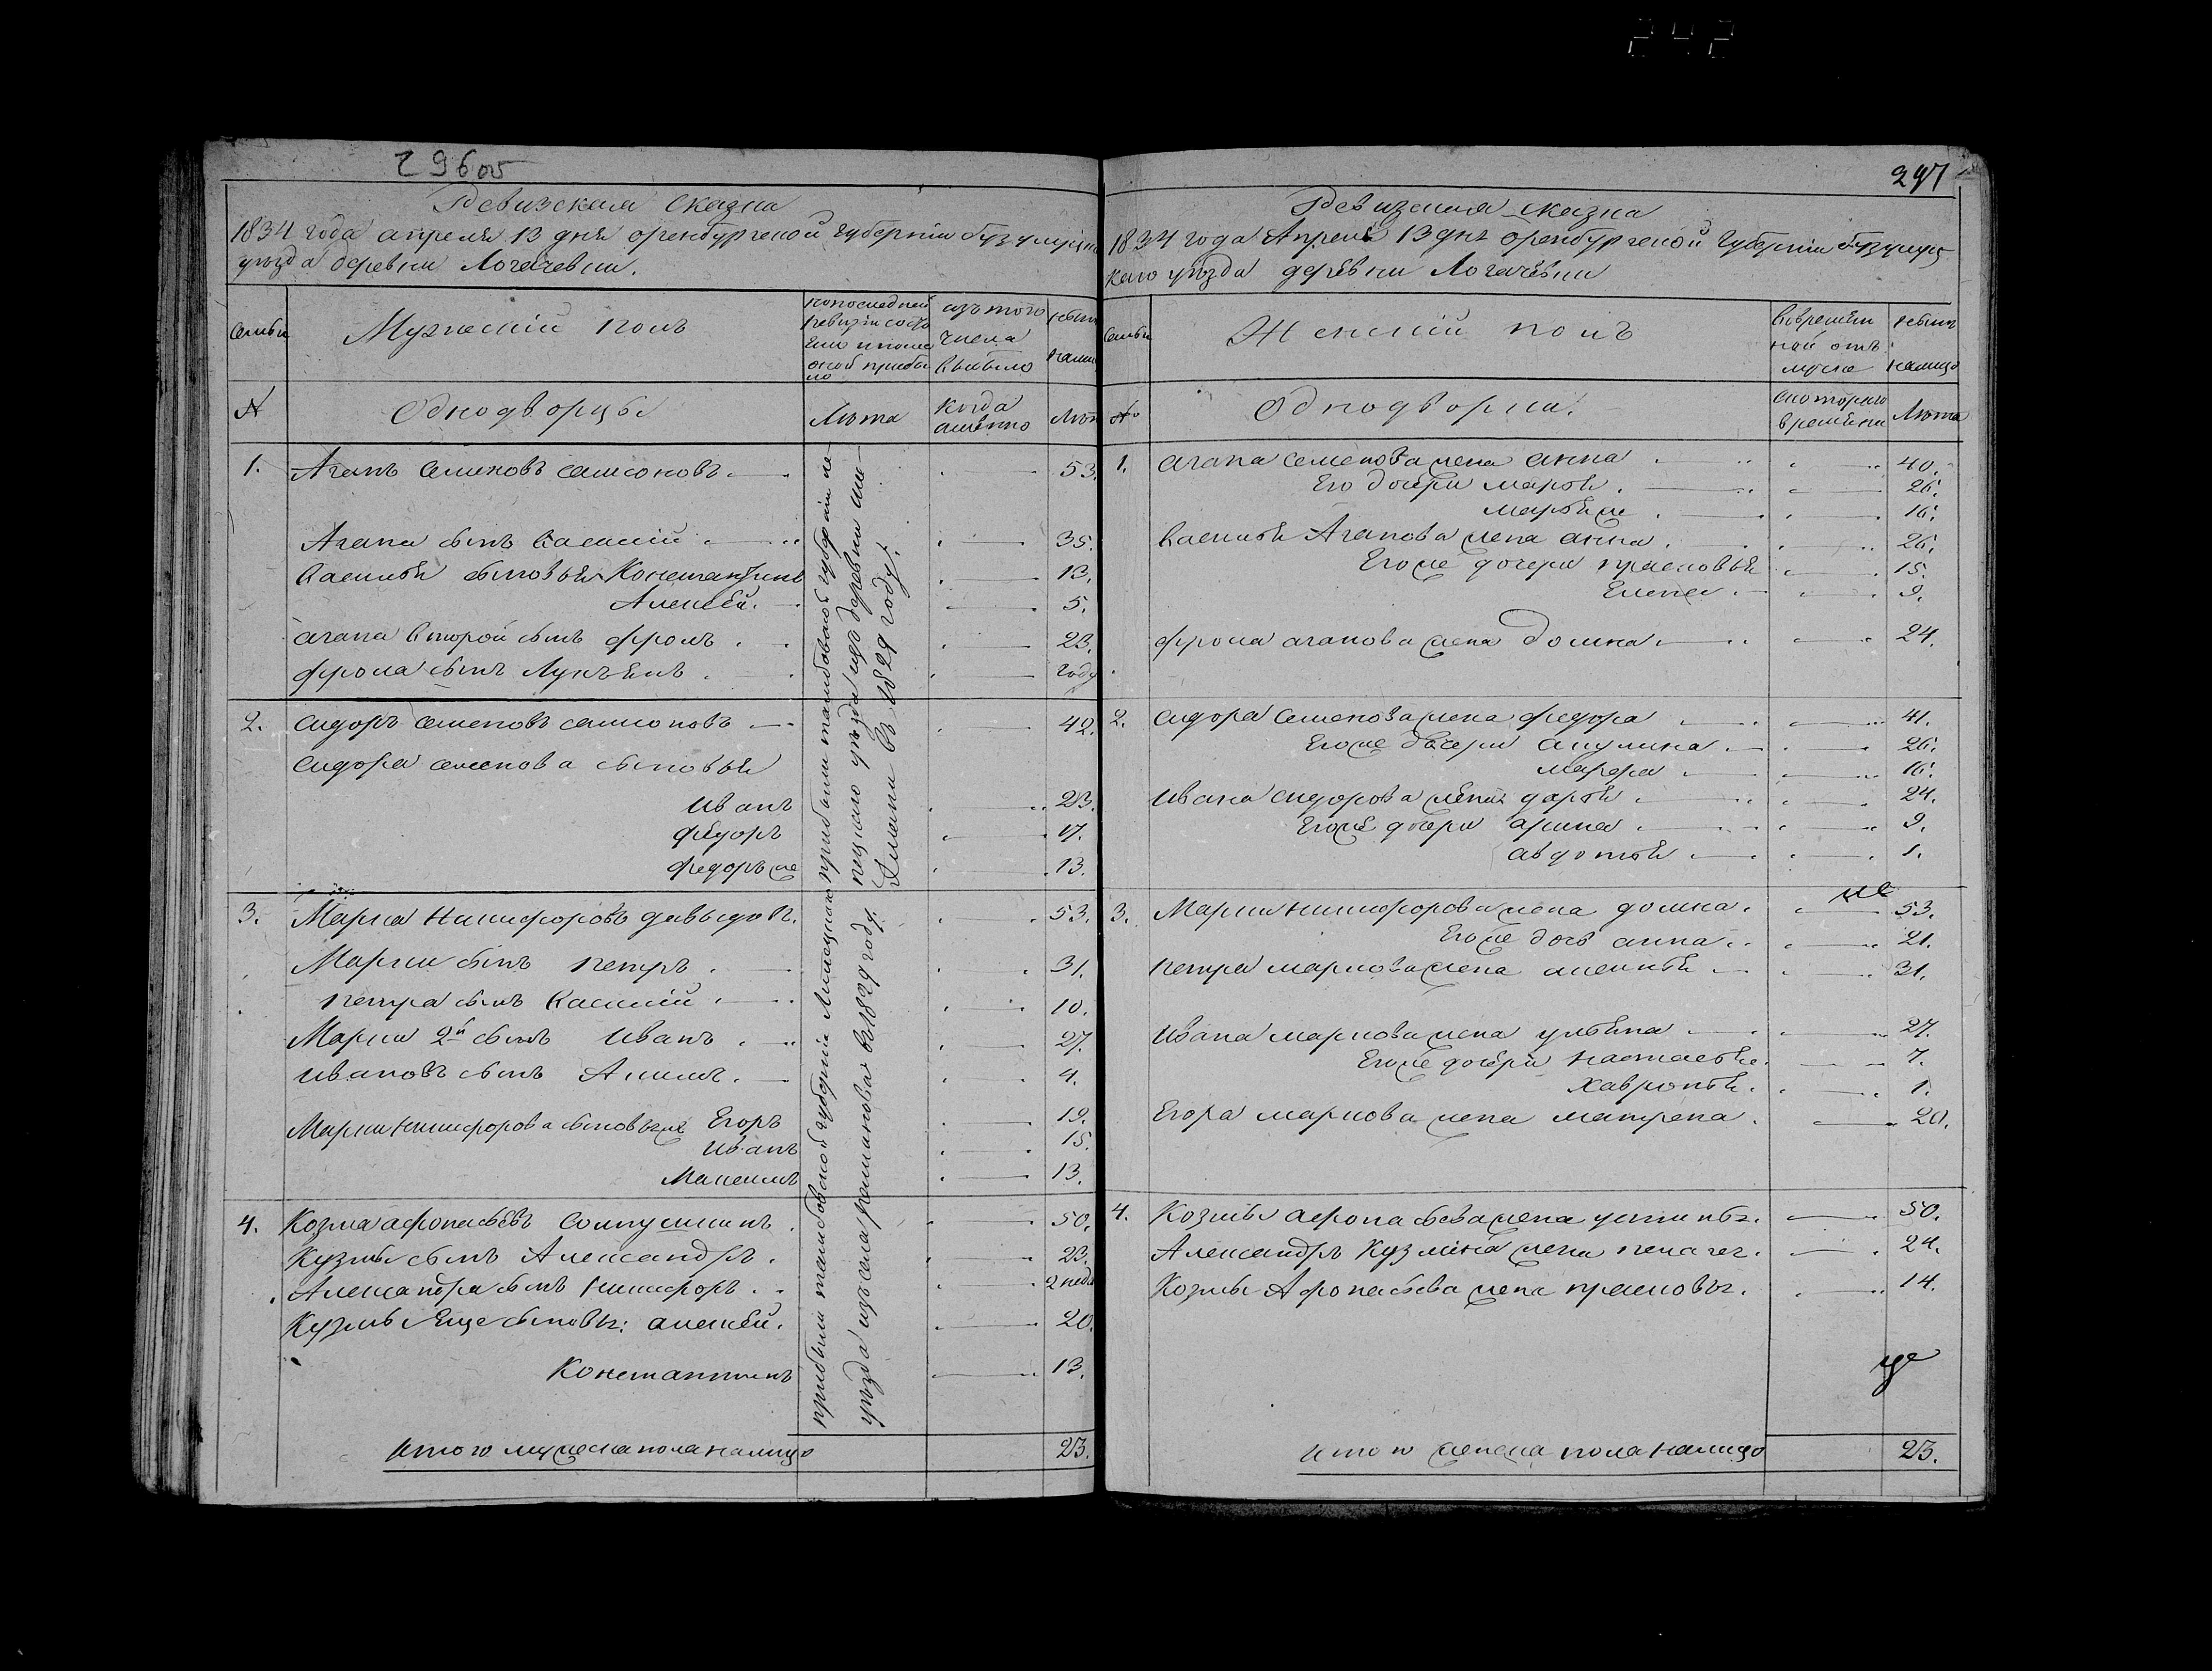 242
296об
Ревизская сказка
1834 года апреля 13 дня оренбургской губернiи бузулуцка
уѣзда деревни Логачевки.
семьи
Мужескiй полъ
попоследней ревизiи состо
изъ того числа выбыло
ныне
№
Однодворцы
Лѣта
когда имѣнно
Лѣта
прибыли тамбовской губернiи ле-
пецкого уѣзда изъ деревни
въ 1829 году.
прибыли тамбовской губернiи Липецкаго
уѣзда изъ села въ 1829 году.
1. Агапъ Семеновъ самсоновъ 53.
Агапа сынъ Василiй 35.
Василья сыновья Константинъ 13.
Алексѣй. 5.
агапа второй сынъ фролъ 23.
фрола сынъ Лукьянъ году
2. сидоръ семеновъ самсоновъ 42.
сидора семенова сыновья
иванъ 23.
федоръ 17.
федоръ же 13.
3. Марка Никифоровъ давыдов. 53.
Марки сынъ петръ 31.
петра сынъ Василiй 10.
Марки 2й сынъ Иванъ 27.
ивановъ сынъ Акимъ 4.
Марки никифорова сыновья Егоръ 19.
иванъ 15.
Максимъ 13.
4. Козма афонасьевъ 50.
Кузмы сынъ Александръ 23.
Александра сынъ Никифоръ 2 неде
Кузмы Еще сыновья: алексѣй. 20.
Константинъ 13.
итого мужеска пола налицо 23.
297
Ревизская сказка
1834 года Апреля 13 дня оренбургской Губернiи бузулуц
каго уѣзда деревни Логачёвки
семьи
Женскiй полъ
вовремен
ной отъ
лучке
ныне
налицо
№
Однодворки.
скоторого
времени
Лѣта
1. агапа семенова жена анна 40.
Его дочери марья 26.
марья же 16.
василья Агапова жена анна 26.
Егоже дочери прасковья 15.
Елена 9.
фрола агапова жена домна 24.
2. сидора семенова жена федора 41.
Егоже дочери акулина 26.
марфа 16.
ивана сидорова жена дарья 24.
Егоже дочери арина 9.
авдотья 1.
3. Марки никифорова жена домна. 53.
Егоже дочь анна 21.
петра маркова жена аксинья 31.
ивана маркова жена ульяна 27.
Егоже дочери настасья 7.
хавронья 1.
Егора маркова жена матрена 20.
4. Козмы афонасьева жена устинья. 50.
Александръ Кузмина жена пелагея. 24.
Козмы Афонасьева жена прасковья. 14.
итого женска пола налицо 23.